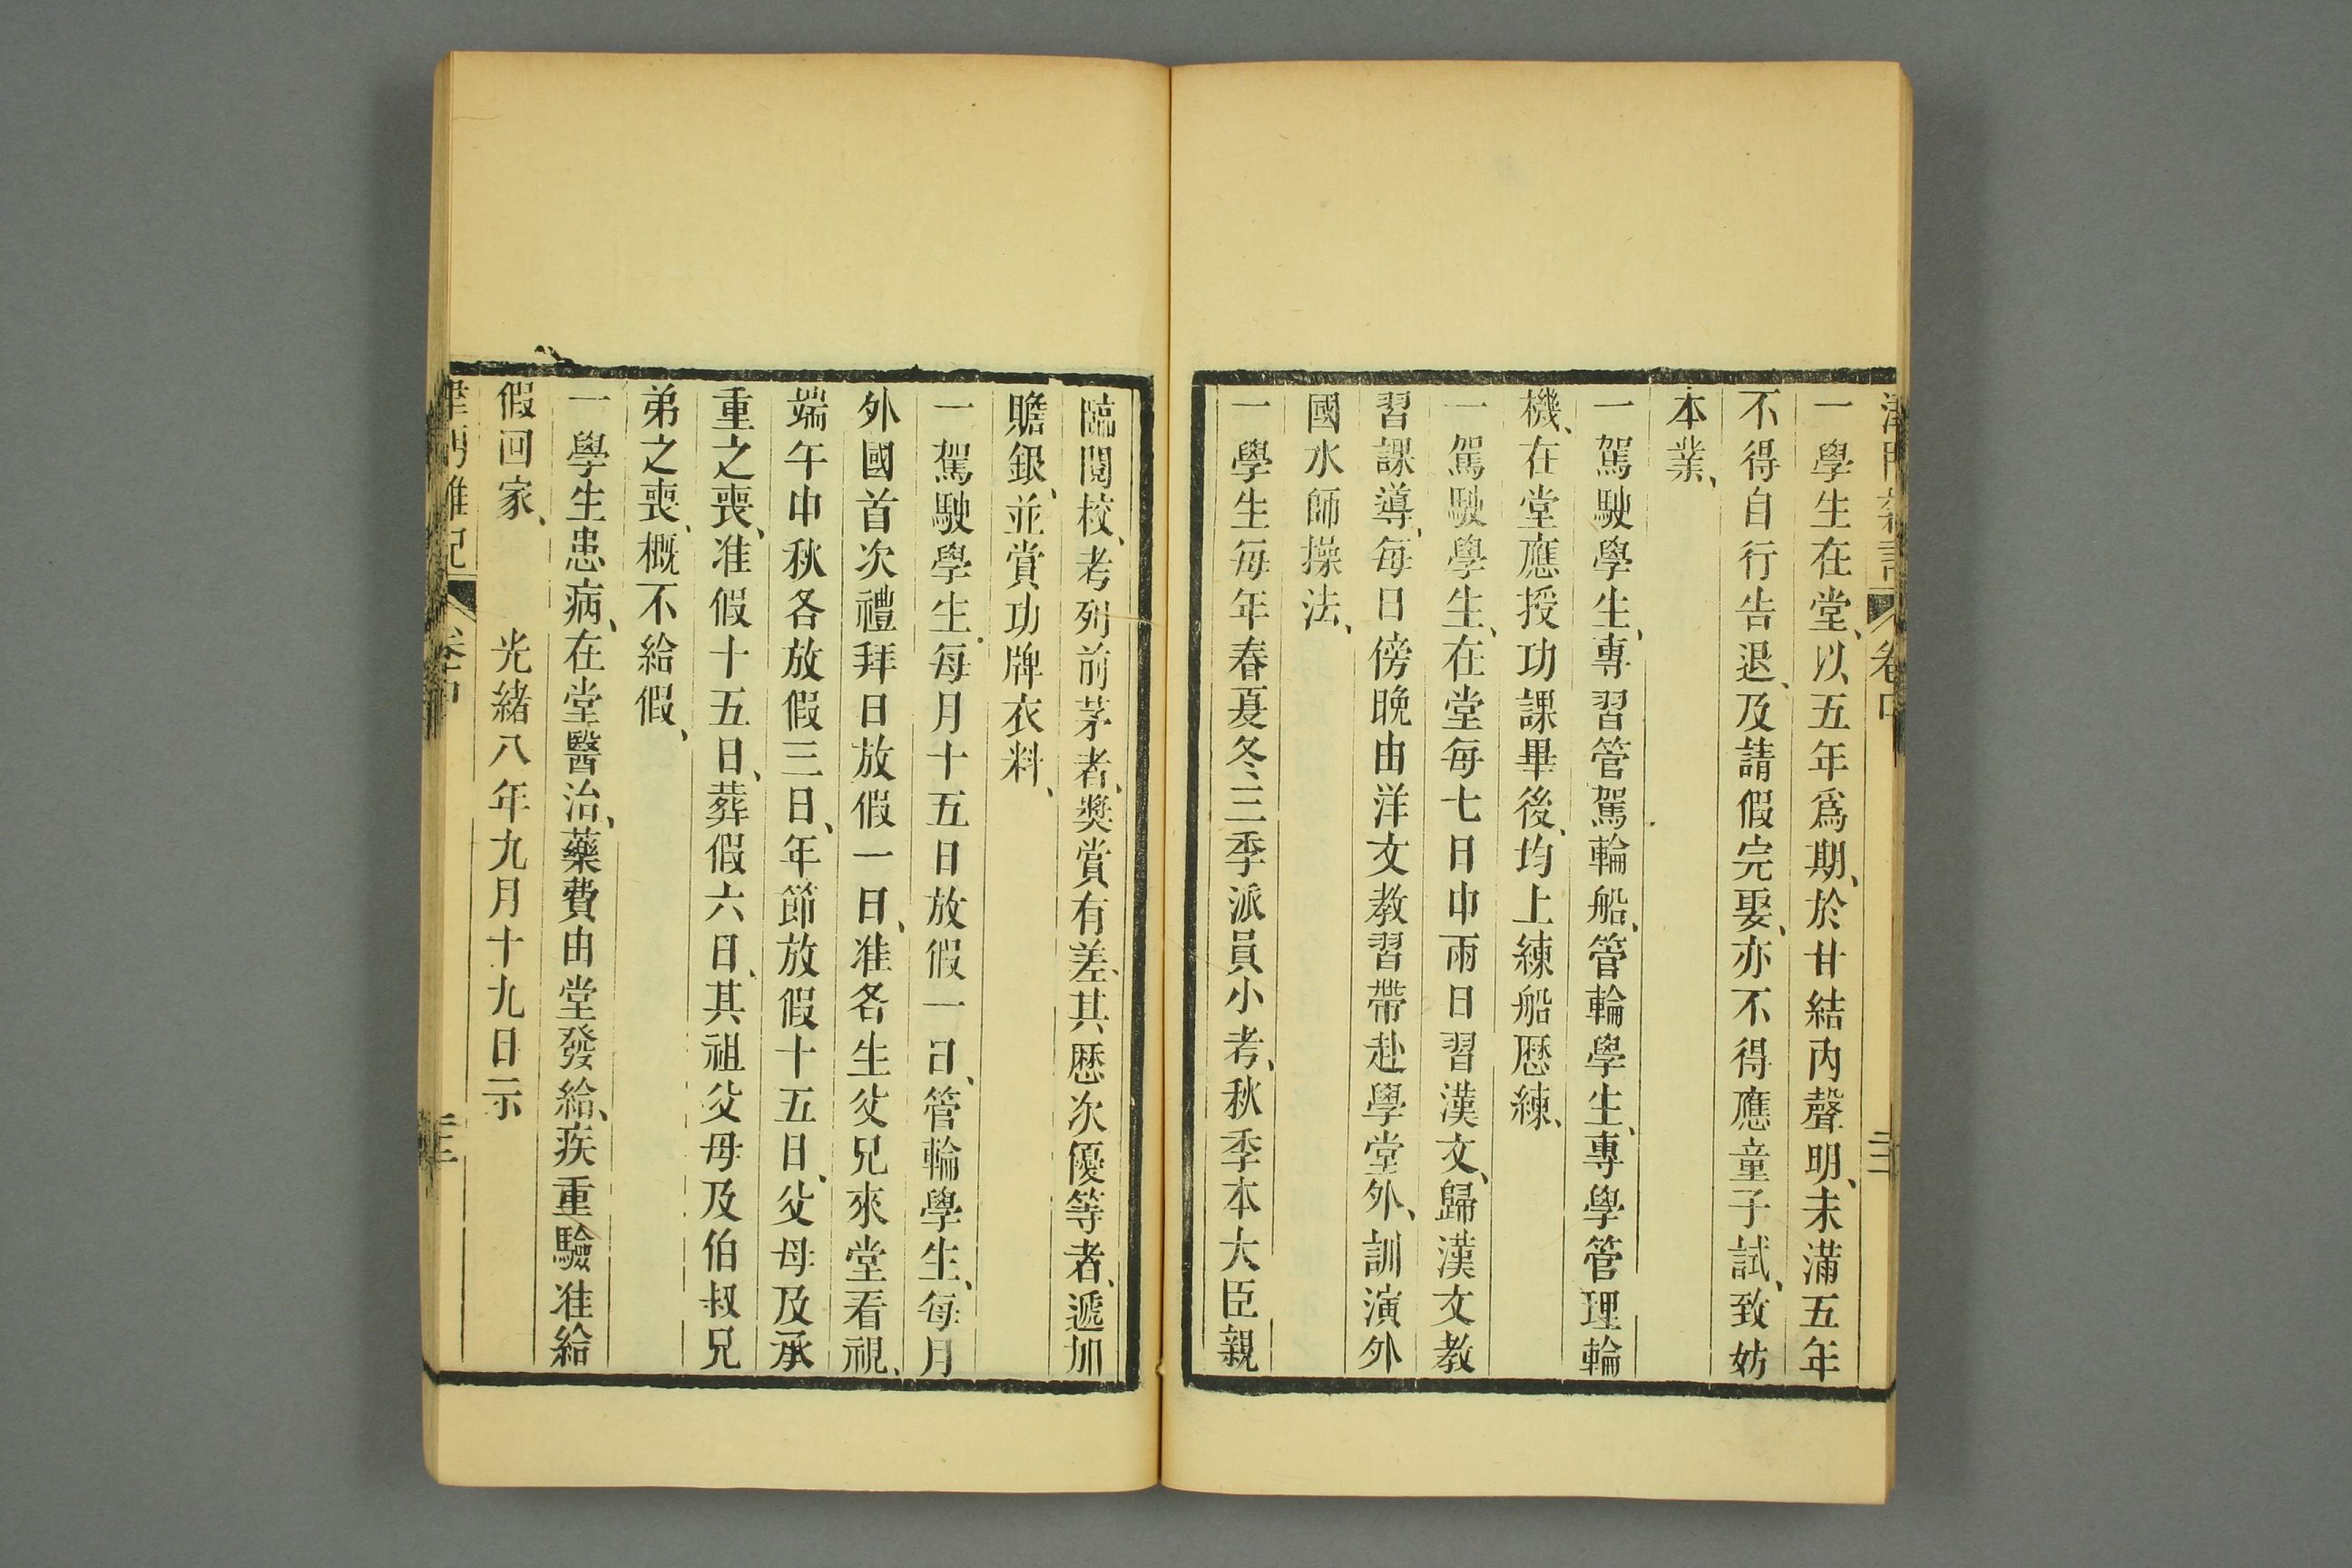 一學生在堂、以五年爲期、於甘結內聲明、未滿五年
不得自行告退、及請假完娶、亦不得應童子試、致妨
本業、
一駕駛學生、專習管駕輪船、管輪學生、專學管理輪
機、在堂應授功課畢後、均上練船歷練、
一駕駛學生、在堂每七日中兩日習漢文、歸漢文教
習課導、每日傍晚由洋文教習帶赴學堂外、訓演外
國水師操法、
一學生每年春夏冬三季派員小考、秋季本大臣親
臨閱校、考列前茅者、獎賞有差、其歷次優等者、遞加
贍銀、並賞功牌衣料、
一駕駛學生、每月十五日放假一日、管輪學生、每月
外國首次禮拜日放假一日、准各生父兄來堂看視、
端午中秋各放假三日、年節放假十五日、父母及承
重之喪、准假十五日、葬假六日、其祖父母及伯叔兄
弟之喪、概不給假、
一學生患病、在堂醫治、藥費由堂發給、疾重驗准給
假回家、　光緒八年九月十九日示